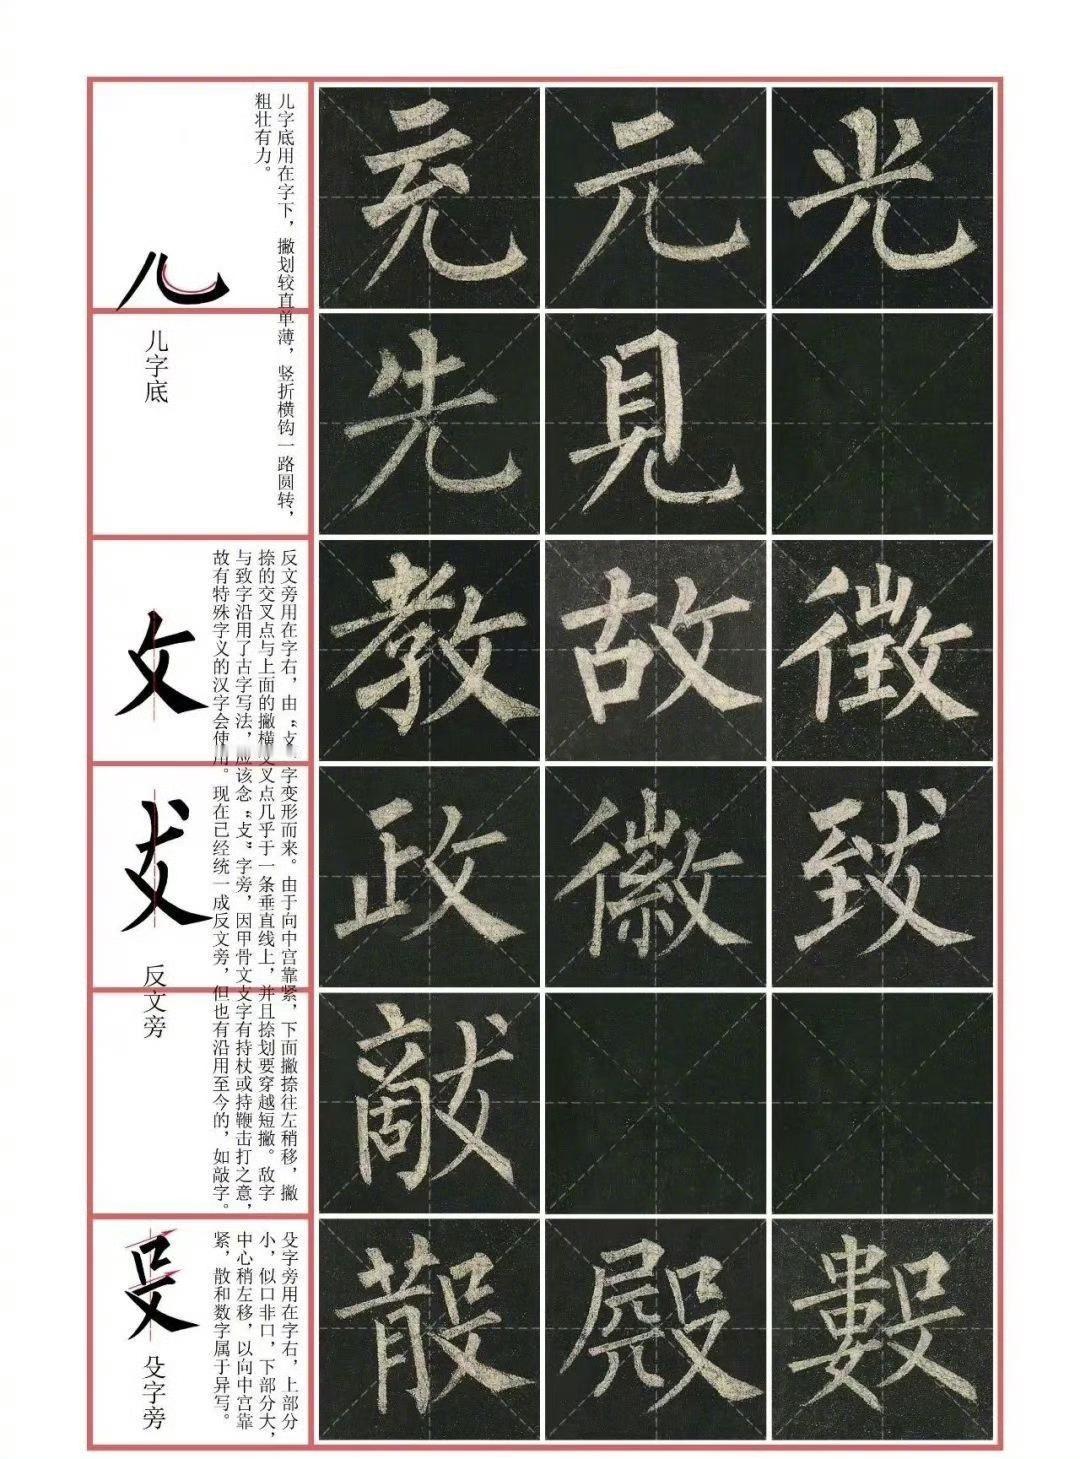 儿字底用在字下，撇划较直单薄，竖折横钩一路圆转，
粗壮有力。
儿
儿字底
充 元 光
先 見
反文旁用在字右，由“攴”字变形而来。由于向中宫靠紧，下面撇捺往左稍移，撇
捺的交叉点与上面的撇横交叉点几乎于一条垂直线上，并且捺划要穿越短撇。故字
与致字沿用了古字写法，应该念“攴”字旁，因甲骨文攴字有持杖或持鞭击打之意，
故有特殊字义的汉字会使用。现在已经统一成反文旁，但也有沿用至今的，如敲字。
攵
反文旁
教 故 徵
政 徽 致
敵
殳字旁用在字右，上部分
小，似口非口，下部分大，
中心稍左移，以向中宫靠
紧，散和数字属于异写。
殳
殳字旁
散 殿 數